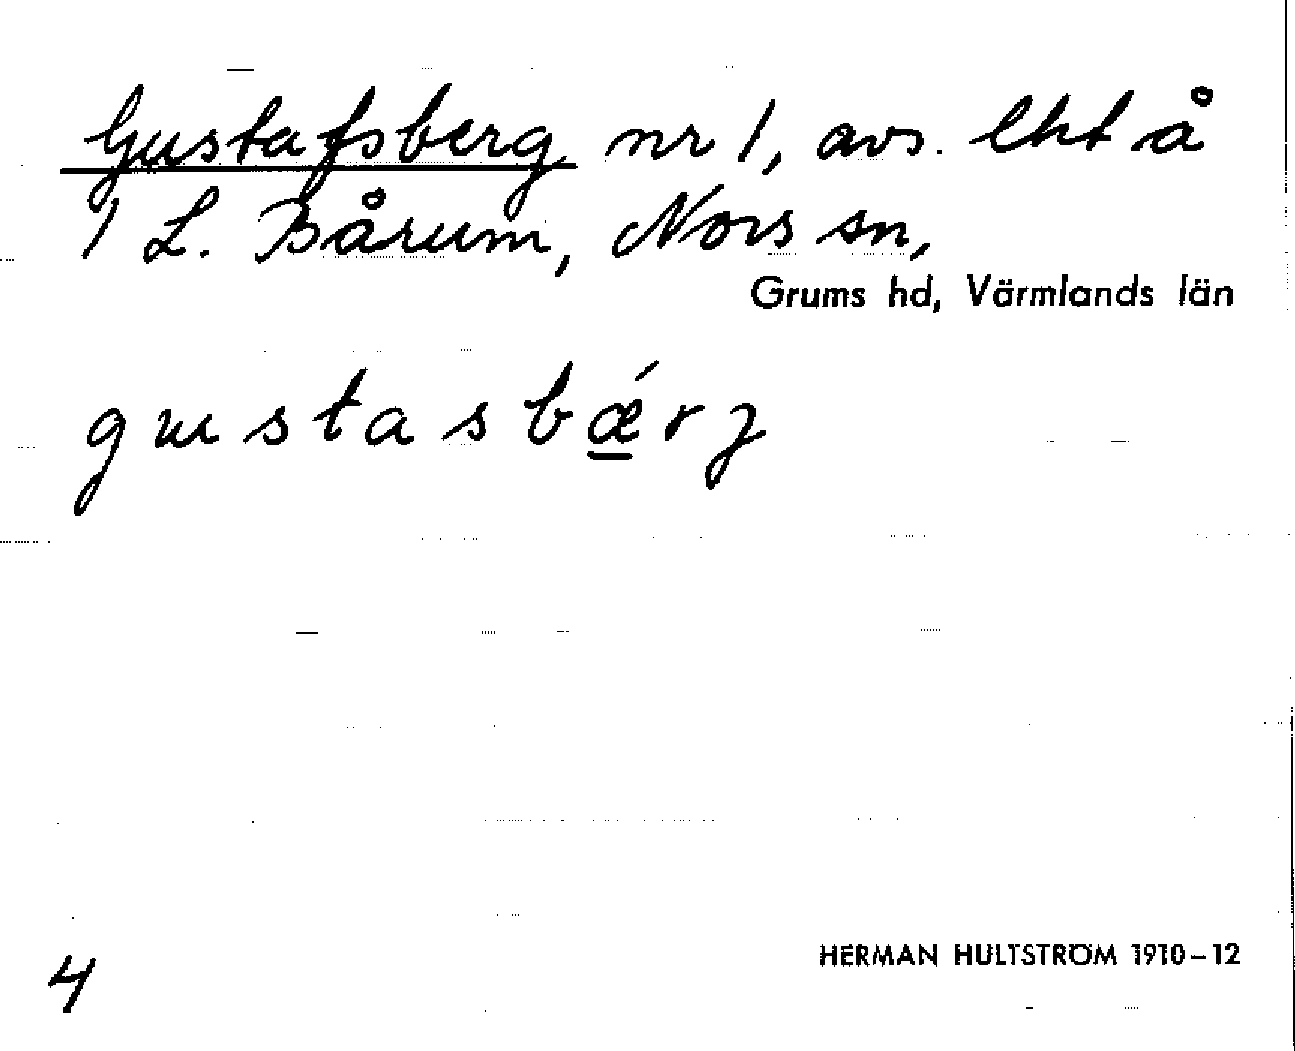 Gustafsberg nr 1, avs. lht å
1 L. Bårum, Nors sn,
Grums hd, Värmlands län
gustasbǽrg
4
HERMAN HULTSTRÖM 1910–12